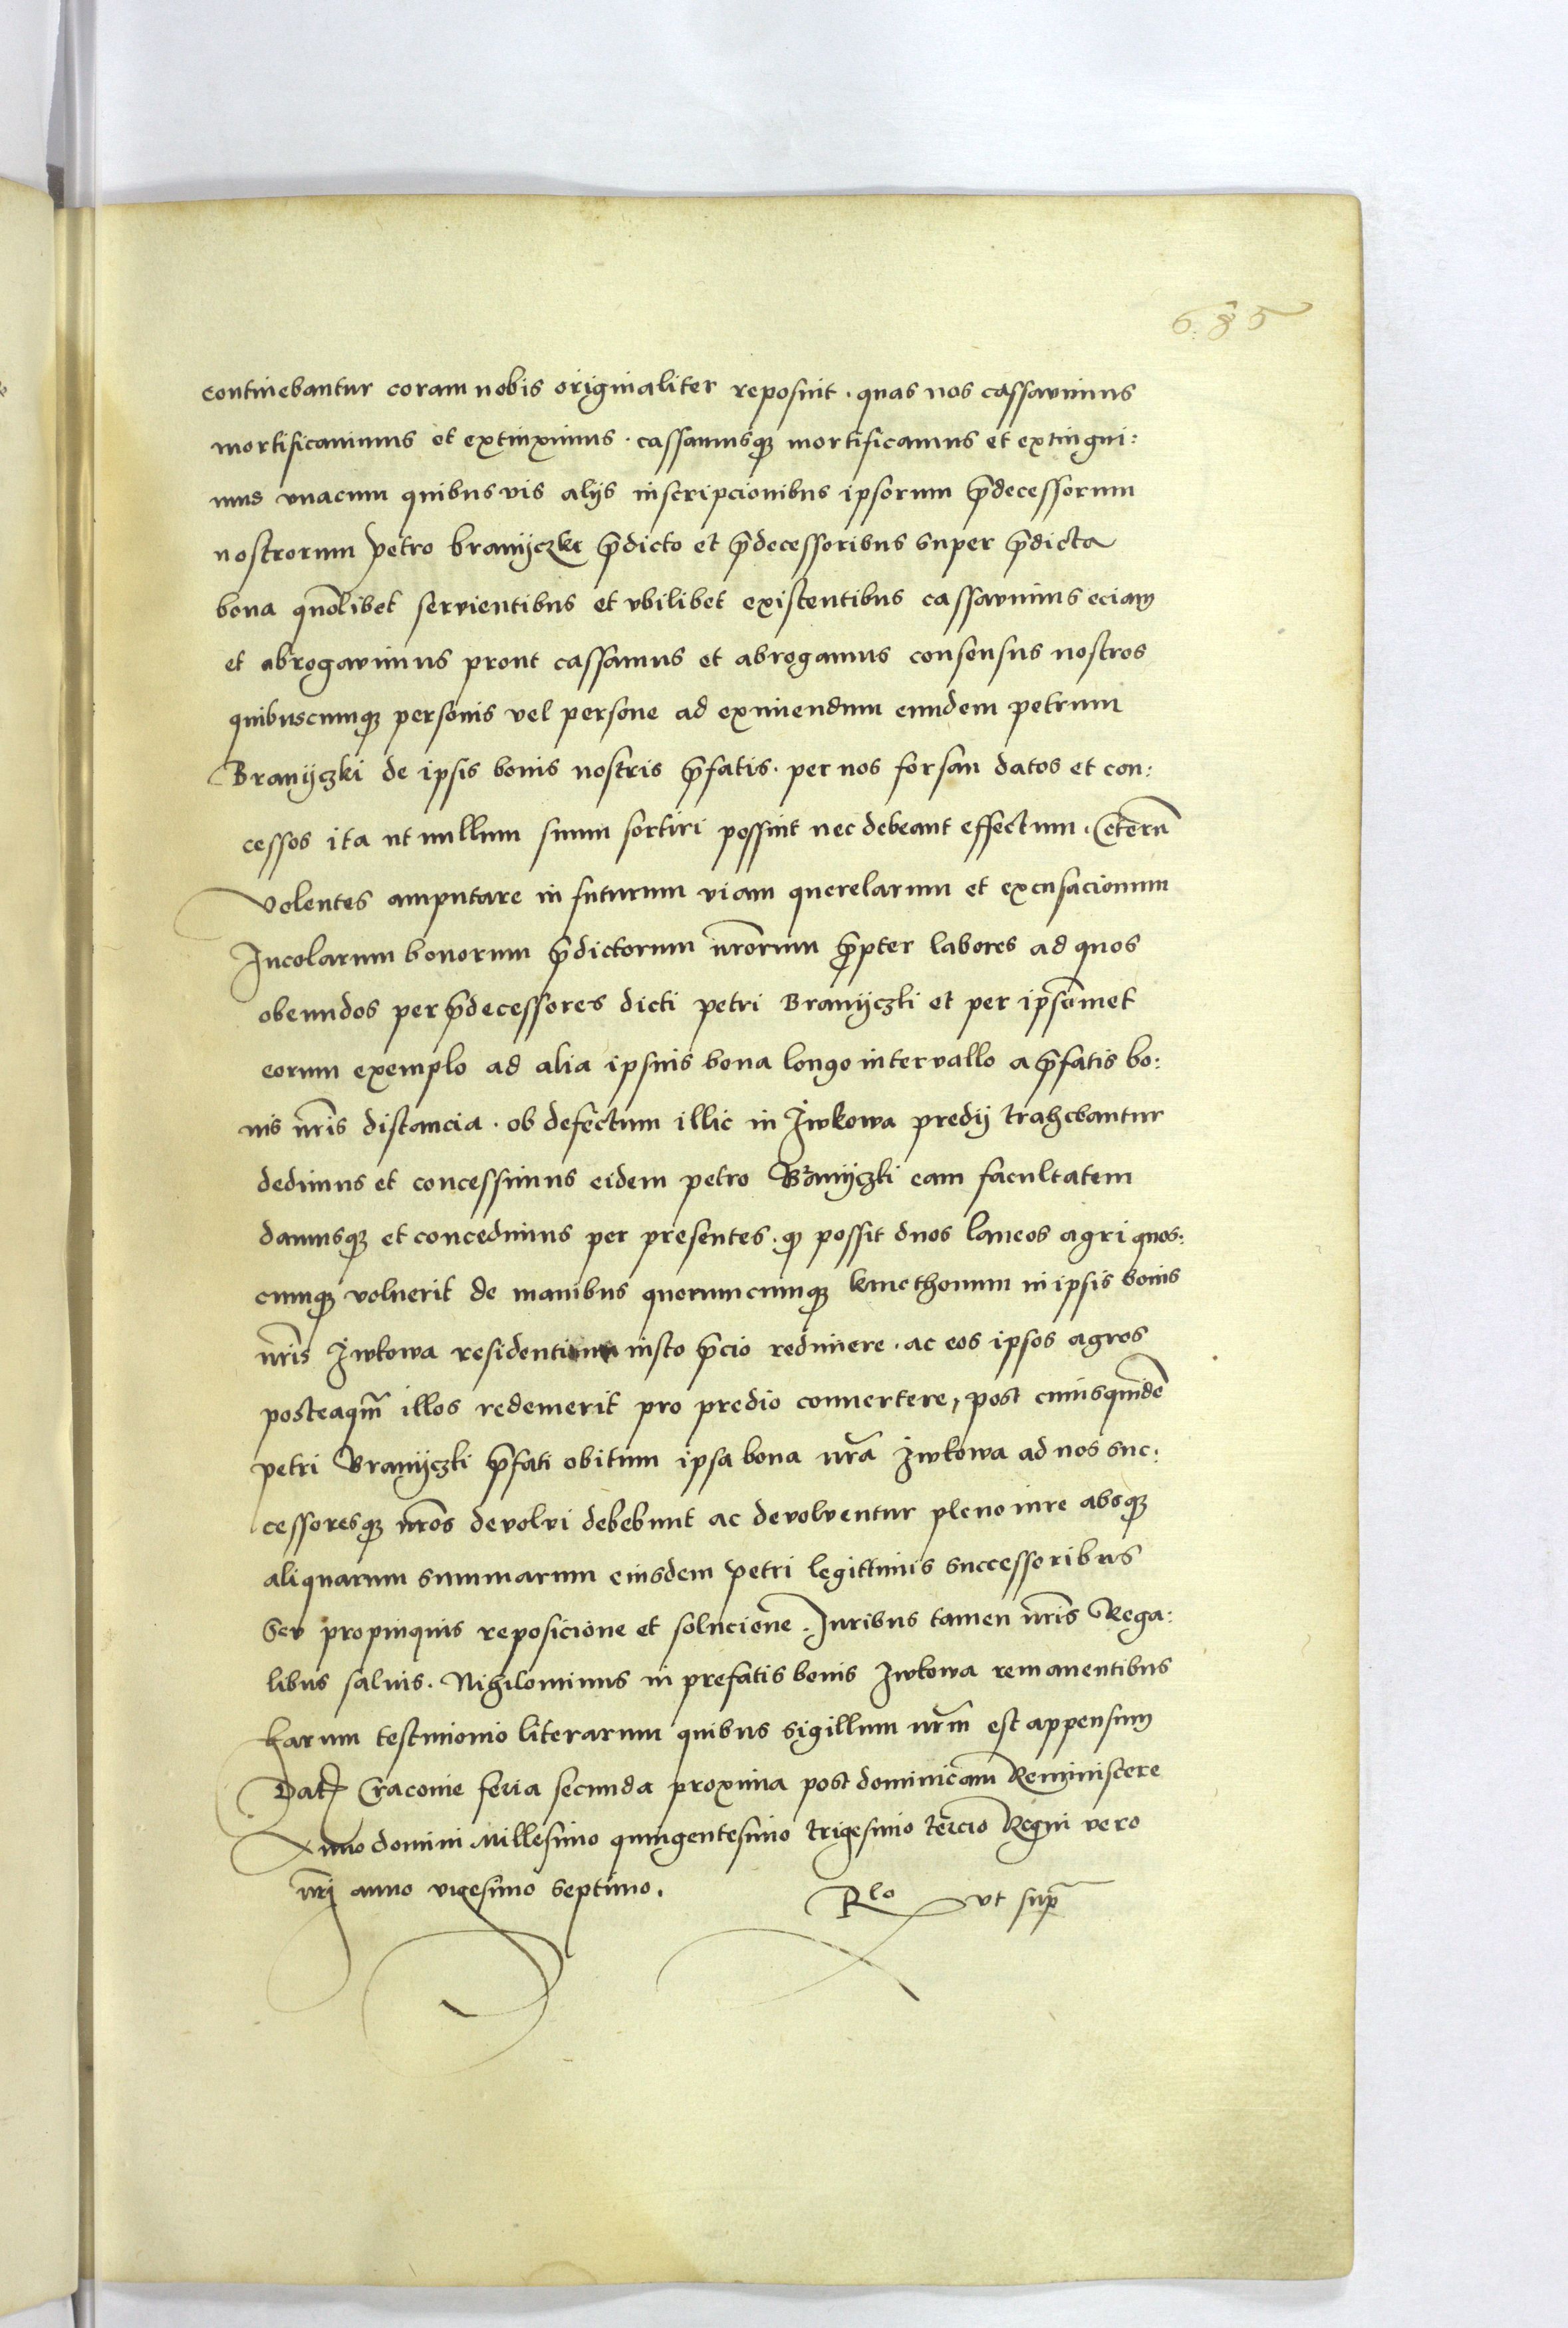 continebantur coram nobis originaliter reposuit . quas nos cassavimus
mortificavimus et extinximus . cassamusqꝫ mortificamus et extingui:
mus vnacum quibusvis alijs inscripcionibus ipsorum p̄decessorum
nostrorum petro branijczki p̄dicto et p̄decessoribus super p̄dicta
bona quōlibet servientibus et vbilibet existentibus cassavimus eciam
et abrogavimus prout cassamus et abrogamus consensus nostros
quibuscumqꝫ personis vel persone ad eximendum eundem petrum
Branijczki de ipsis bonis nostris p̄fatis . per nos forsan datos et con:
cessos ita ut nullum suum sortiri possint nec debeant effectum . Ceterū
volentes amputare in futurum viam querelarum et excusacionum
Incolarum bonorum p̄dictorum nr̄orum p̄pter labores ad quos
obeundos per p̄decessores dicti petri Branijczki et per ipsūmet
eorum exemplo ad alia ipsius bona longo intervallo a p̄fatis bo:
nis nr̄is distancia . ob defectum illic in Iwkowa predij trahebantur
dedimus et concessimus eidem petro Branijczki eam facultatem
damusqꝫ et concedimus per presentes . ꝙ possit duos laneos agri quos:
cumqꝫ voluerit de manibus quorumcumqꝫ kmethonum in ipsis bonis
nr̄is Iwkowa residentium iusto p̄cio redimere . ac eos ipsos agros
posteaqm̄ illos redemerit pro predio convertere, post cuiusquidē
petri Branijczki p̄fati obitum ipsa bona nr̄a Iwkowa ad nos suc:
cessoresqꝫ nr̄os devolvi debebunt ac devolventur pleno iure absqꝫ
aliquarum summarum eiusdem petri legittimis successoribus
Seu propinquis reposicione et solucione . Iuribus tamen nr̄is Rega:
libus salvis . Nihilominus in prefatis bonis Iwkowa remanentibus
harum testimonio literarum quibus sigillum nr̄m est appensum
Datꝭ Cracovie feria secunda proxima post dominicam Reminiscere
Anno domini Millesimo quingentesimo trigesimo tercio Regni vero
nr̄i anno vigesimo septimo .
Rlo ut supᷓ